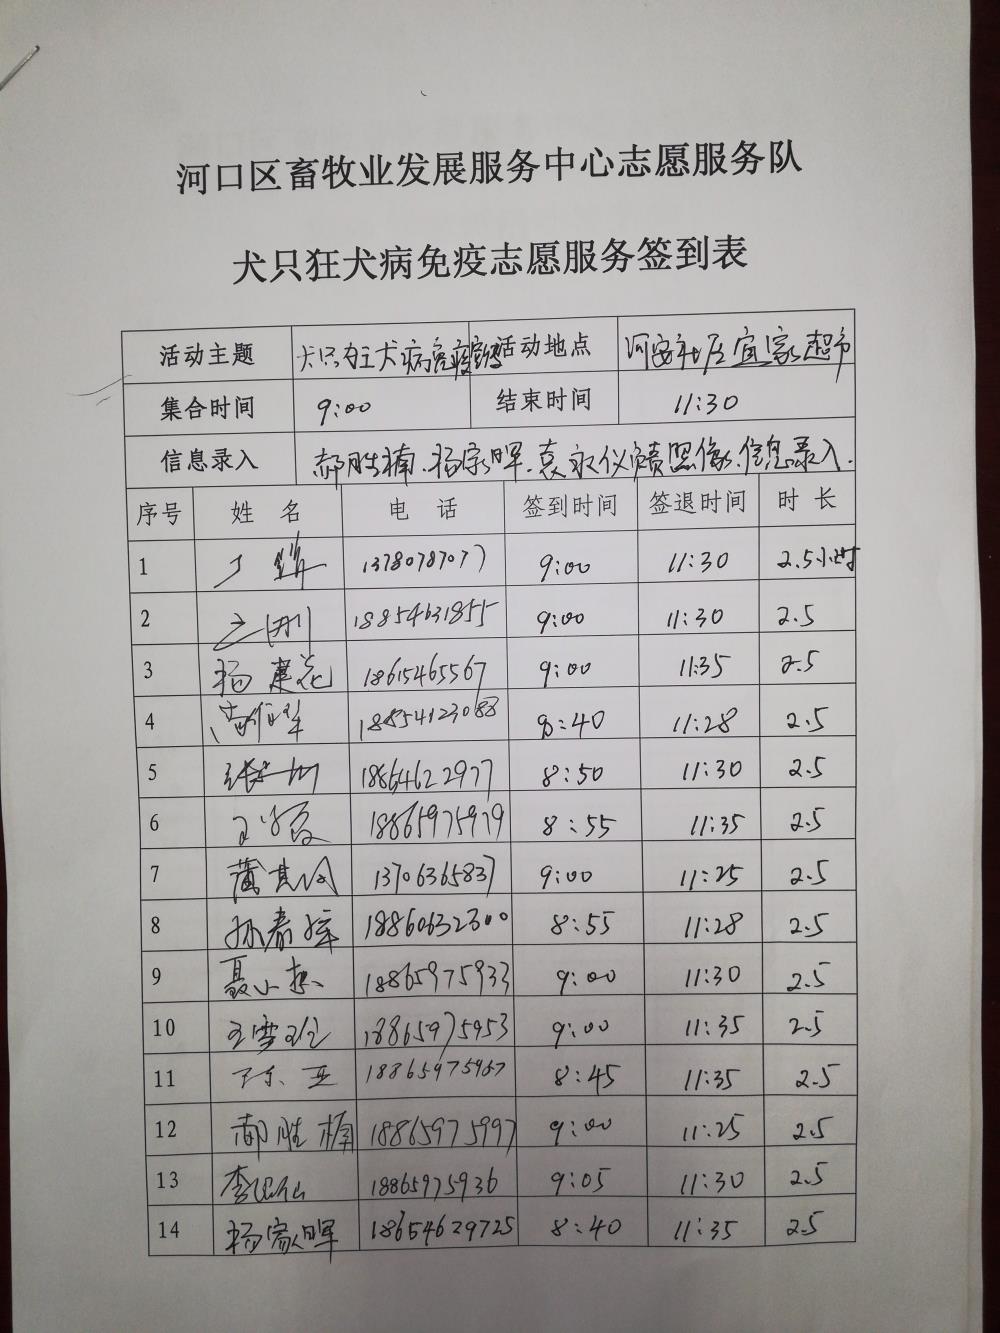 河口区畜牧业发展服务中心志愿服务队
犬只狂犬病免疫志愿服务签到表
活动主题 犬只狂犬病免疫 活动地点 河安社区宜家超市
集合时间 9:00 结束时间 11:30
信息录入 郝胜楠、杨家晖、袁永仪负责照像、信息录入.
序号 姓名 电话 签到时间 签退时间 时长
1 13780787077 9:00 11:30 2.5小时
2 18854631855 9:00 11:30 2.5
3 杨建花 18615465567 9:00 11:35 2.5
4 18854123088 8:40 11:28 2.5
5 18654622977 8:50 11:30 2.5
6 18865975979 8:55 11:35 2.5
7 13706365837 9:00 11:25 2.5
8 孙春辉 18860632300 8:55 11:28 2.5
9 聂小 18865975933 9:00 11:30 2.5
10 王雪 18865975953 9:00 11:35 2.5
11 陈亚 18865975957 8:45 11:35 2.5
12 郝胜楠 18865975997 9:00 11:25 2.5
13 李 18865975936 9:05 11:30 2.5
14 杨家晖 18654629725 8:40 11:35 2.5